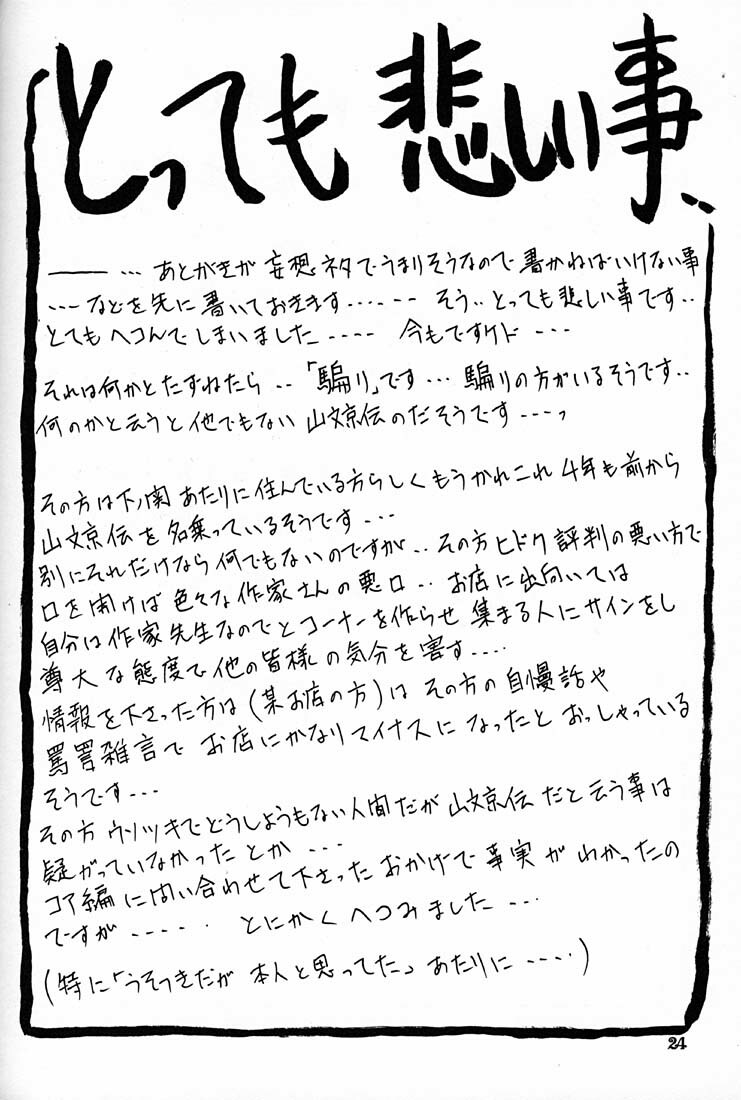 とっても悲しい事..
―― … あとがきが 妄想ネタでうまりそうなので 書かねばいけない事
---- などを先に書いておきます------ そう.. とっても悲しい事です..
とてもヘコんでしまいました ---- 今もですケド ---
それは何かとたずねたら .. 「騙り」です … 騙りの方がいるそうです..
何のかと云うと他でもない 山文京伝のだそうです ---っ
その方は下ノ関 あたりに住んでいる方らしく もうかれこれ 4年も前から
山文京伝を名乗っているそうです ---
別にそれだけなら何でもないのですが .. その方 ヒドク評判の悪い方で
口を開けば 色々な作家さんの悪口 .. お店に出向いては
自分は作家先生なのでとコーナーを作らせ 集まる人にサインをし
尊大な態度で他の皆様の気分を害す ----
情報を下さった方は(某お店の方)は その方の自慢話や
罵詈雑言で お店にかなりマイナスに なったと おっしゃっている
そうです ---
その方 ウソツキでどうしようもない人間だが 山文京伝だと云う事は
疑がっていなかったとか ---
コア編に問い合わせて下さった おかげで 事実が わかったの
ですが ----- とにかく へコみました ---
(特に「うそつきだが 本人と思ってた」 あたりに ----)
24